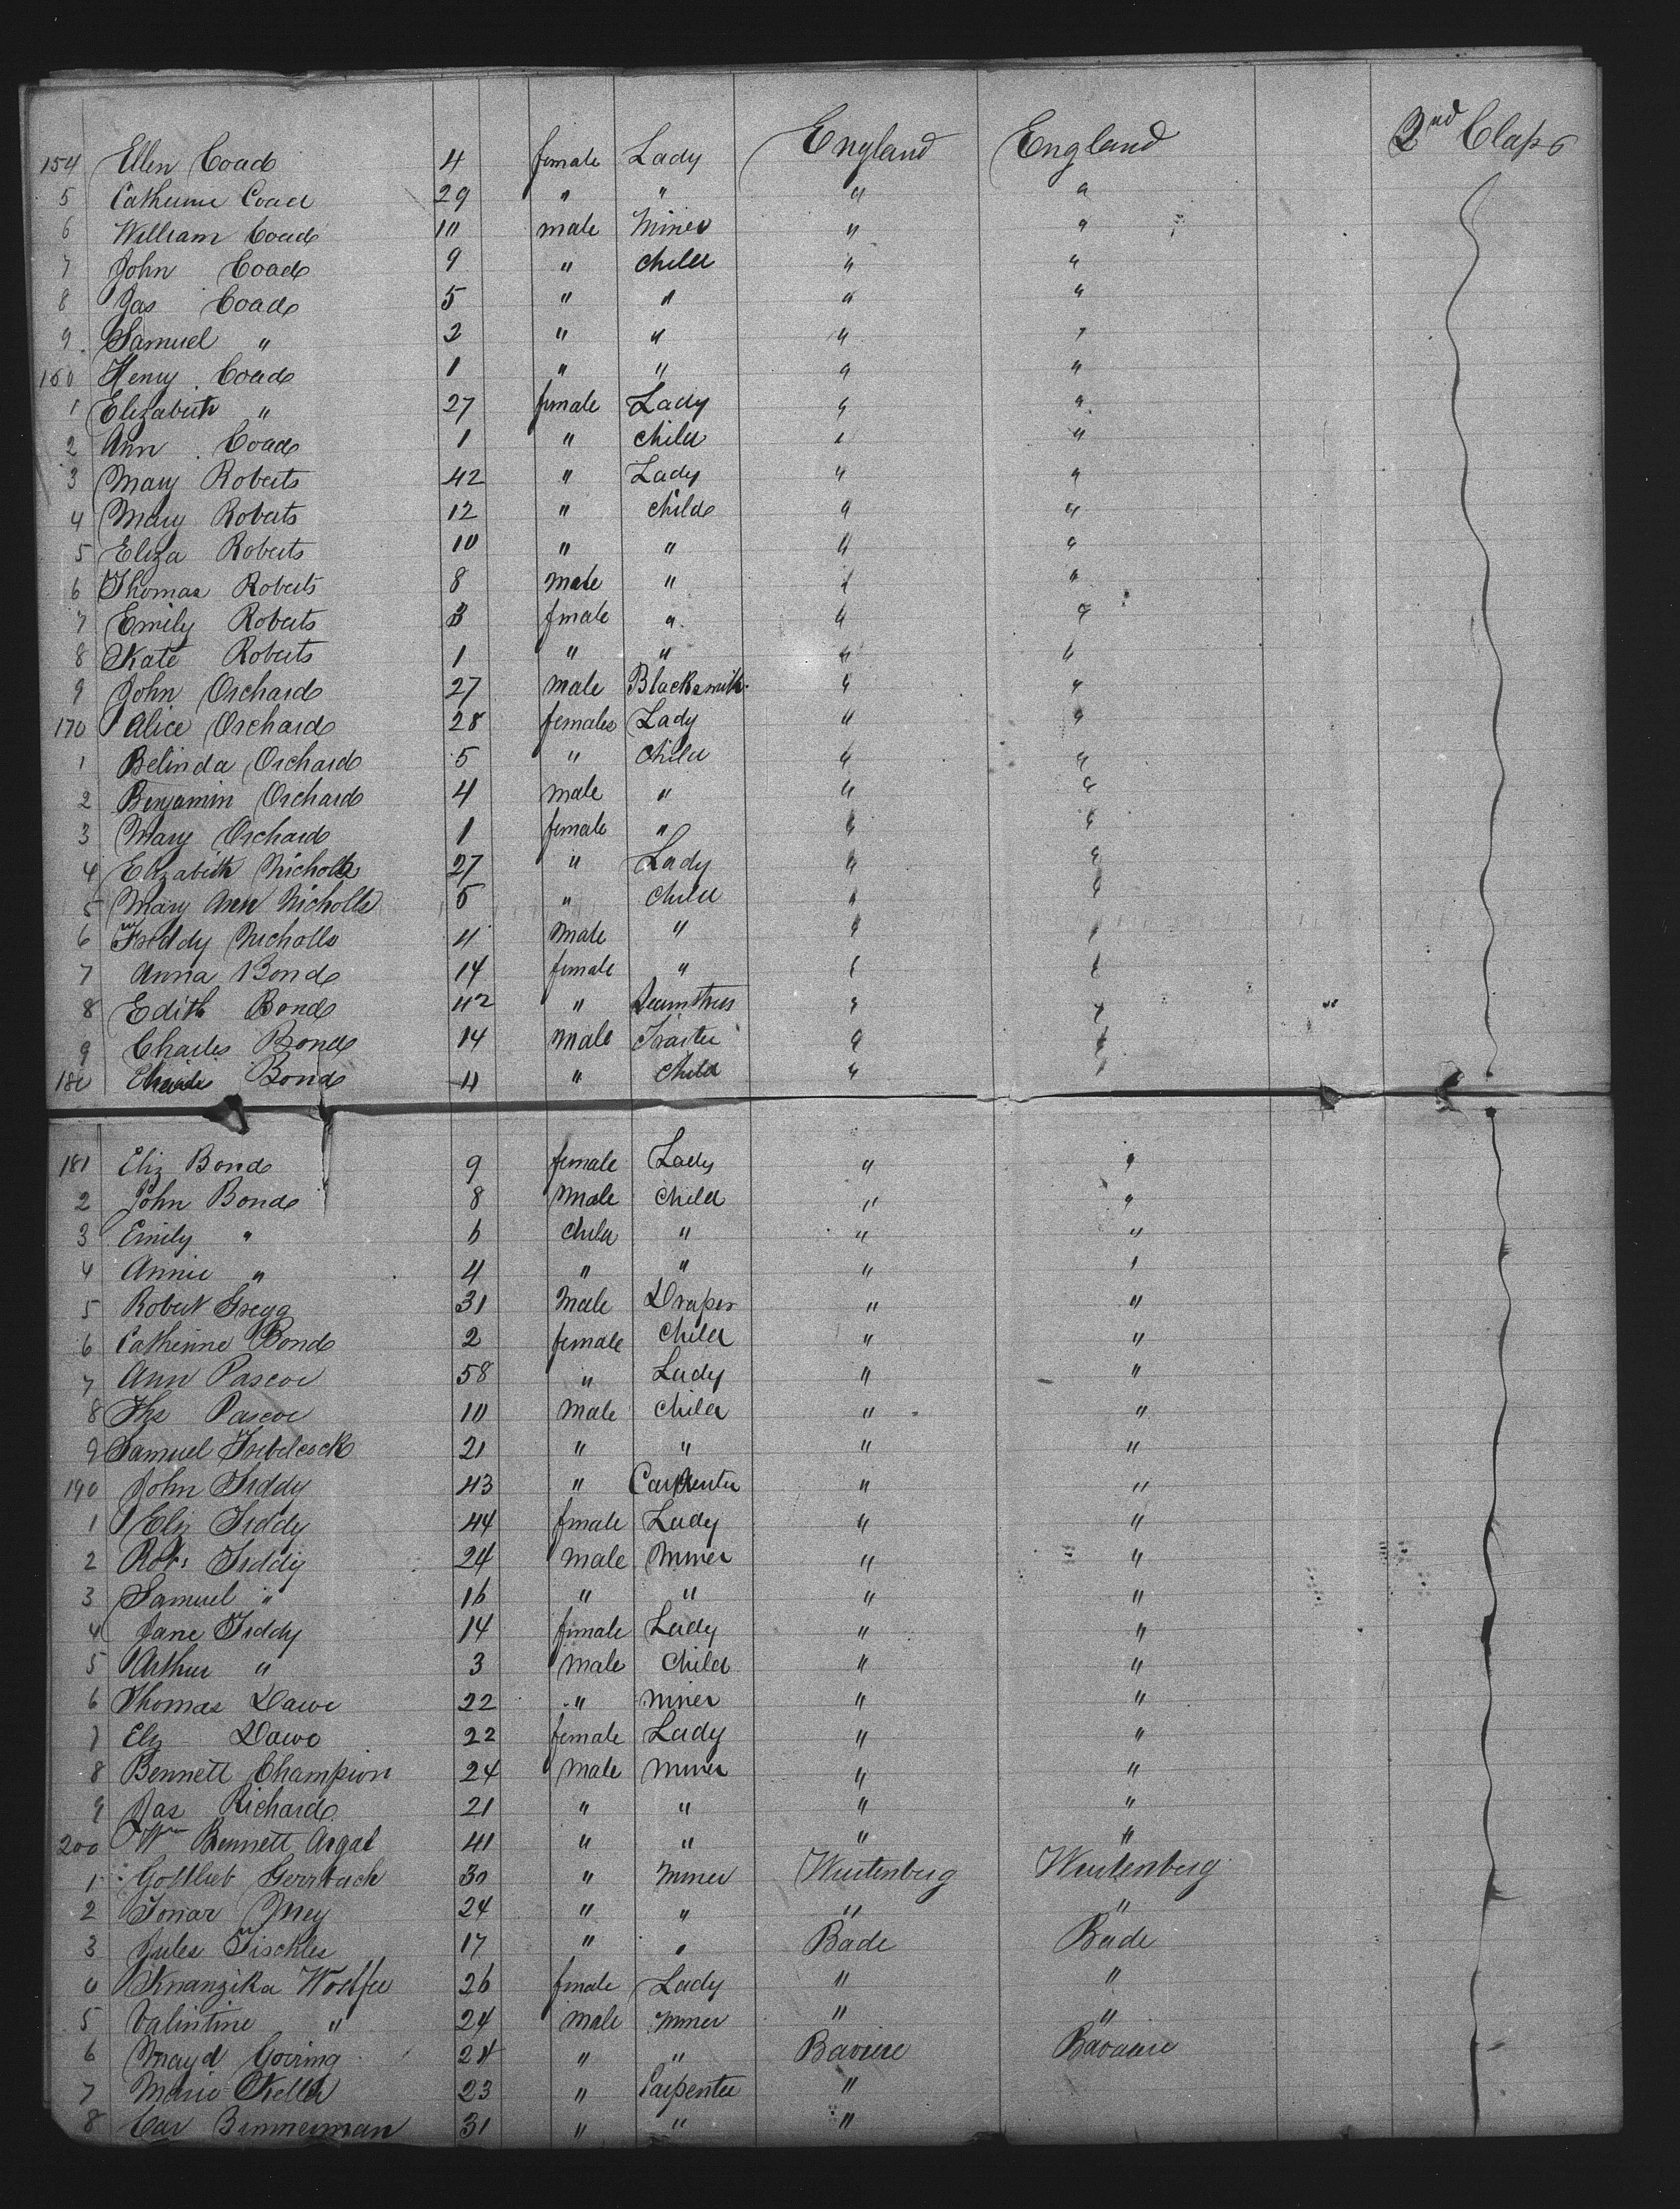 154 Ellen Coad 4 female Lady England England 2nd Class
5 Catherine Coad 29 " " " "
6 William Coad 10 male Miner " "
7 John Coad 9 " child " "
8 Jas Coad 5 " " " "
9 Samuel " 2 " " " "
160 Henry Coad 1 " " " "
1 Elizabeth " 27 female Lady " "
2 Ann Coad 1 " child " "
3 Mary Roberts 42 " Lady " "
4 Mary Roberts 12 " child " "
5 Eliza Roberts 10 " " " "
6 Thomas Roberts 8 male " " "
7 Emily Roberts 3 fmale " " "
8 Kate Roberts 1 " " " "
9 John Orchard 27 male Blacksmith " "
170 Alice Orchard 28 females Lady " "
1 Belinda Orchard 5 " child " "
2 Benjamin Orchard 4 male " " "
3 Mary Orchard 1 female " " "
4 Elizabeth Nicholls 27 " Lady " "
5 Mary Ann Nicholls 5 " child " "
6 Freddy Nicholls 4 male " " "
7 Anna Bond 14 female " " "
8 Edith Bond 42 " " "
9 Charles Bond 14 male " "
180 Bond 4 " child "
181 Eliz Bond 9 female Lady " "
2 John Bond 8 male child " "
3 Emily " 6 child " " "
4 Annie " 4 " " " "
5 Robert Gregg 31 male Draper " "
6 Catherine Bond 2 female child " "
7 Ann Pascoe 58 " Lady " "
8 Ths Pascoe 10 male child " "
9 Samuel Trebelcock 21 " " " "
190 John Tiddy 43 " Carpenter " "
1 Eliz Tiddy 44 fmale Lady " "
2 Robt Tiddy 24 male Miner " "
3 Samuel " 16 " " " "
4 Jane Tiddy 14 female Lady " "
5 Arthur " 3 male child " "
6 Thomas Dawe 22 " miner " "
7 Elz Dawe 22 female Lady " "
8 Bennett Champion 24 male miner " "
9 Jas Richard 21 " " " "
200 Wm Bennett Argal 41 " " " "
1 Gottlieb Gerrbach 30 " miner Wurtenberg Wurtenberg
2 24 " " " "
3 Jules Tischler 17 " " Bade Bade
4 26 fmale Lady " "
5 Valintine " 24 male miner " "
6 Goering 24 " " Baviere Baviere
7 Keller 23 " Carpenter "
8 31 " " "